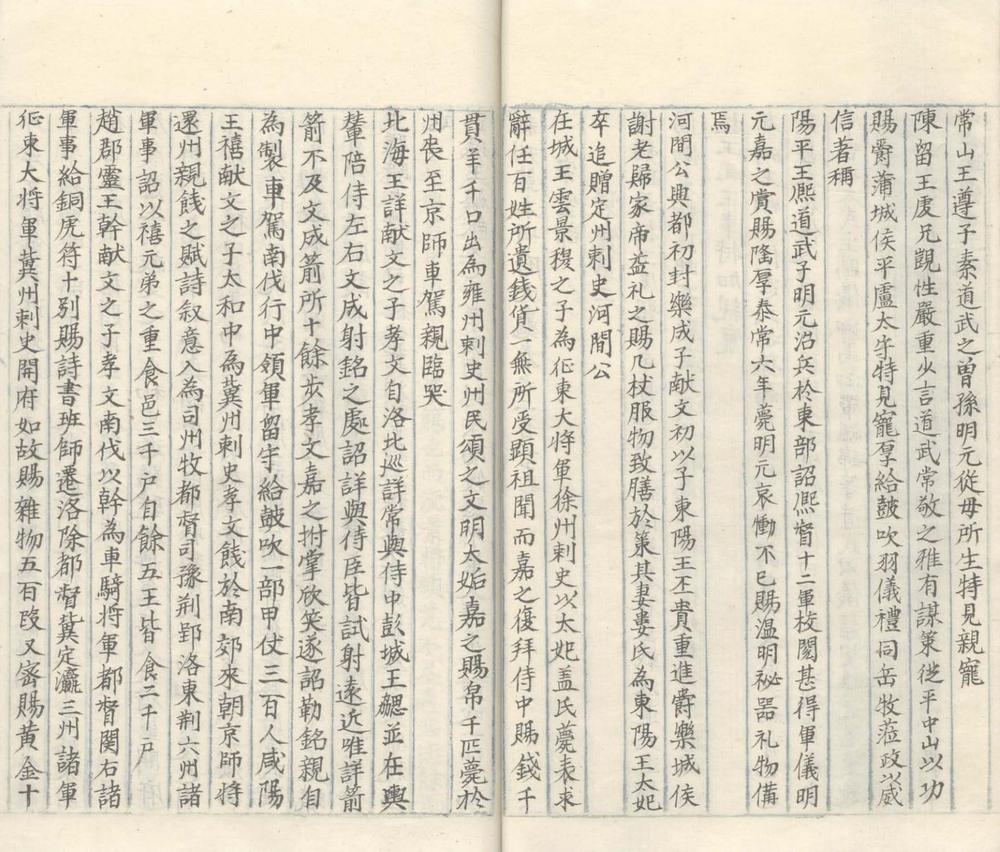 常山王遵子素道武之曽孫明元從母所生特見親寵
陳留王虔兄覬性嚴重少言道武常敬之雅有謀策從平中山以功
賜爵蒲城侯平盧太守特見寵厚給皷吹羽儀禮同岳牧蒞政以威
信著稱
陽平王熈道武子明元治兵於東部詔熈督十二軍校閱甚得軍儀明
元嘉之賞賜隆厚泰常六年薨明元哀慟不已賜温明祕器礼物備
焉
河間公興都初封樂成子献文初以子東陽王丕貴重進爵樂城侯
謝老歸家帝益礼之賜几杖服物致膳於第其妻婁氏為東陽王太妃
卒追贈定州刺史河間公
任城王雲景穆之子為征東大將軍徐州刺史以太妃盖氏薨表求
辭任百姓所遺錢貨一無所受顯祖聞而嘉之復拜侍中賜錢千
貫羊千口出為雍州刺史州民頌之文明太妬嘉之賜帛千匹薨於
州喪至京師車駕親臨哭
北海王詳献文之子孝文自洛北巡詳常與侍中彭城王勰並在輿
輦陪侍左右文成射銘之處詔詳與侍臣皆試射遠近唯詳箭
箭不及文成箭所十餘步孝文嘉之拊掌欣笑遂詔勒銘親自
為製車駕南伐行中領軍留守給皷吹一部甲仗三百人咸陽
王禧献文之子太和中為冀州刺史孝文餞於南郊來朝京師將
還州親餞之賦詩叙意入為司州牧都督司豫荆郢洛東荆六州諸
軍事詔以禧元弟之重食邑三千户自餘五王皆食二千户
趙郡靈王幹献文之子孝文南伐以幹為車騎將軍都督関右諸
軍事給銅虎符十别賜詩書班師遷洛除都督冀定瀛三州諸軍
征東大將軍冀州刺史開府如故賜雜物五百段又密賜黄金十